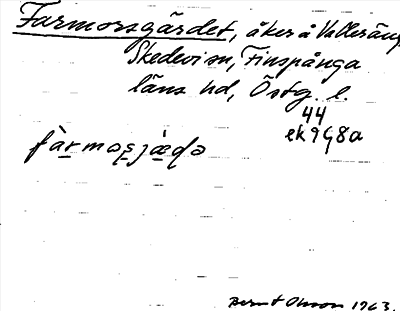 Farmorsgärdet, åker å Valleräng
Skedevi sn, Finspånga
läns hd, Östg. l.
44
ek 9 G 8a
fàrmoʂjæ̀ɖə
Bernt Olsson 1963.